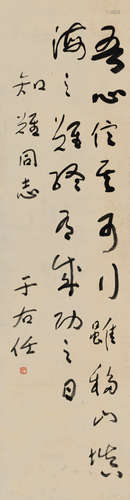 吾心信其可行雖移山填
海之難終有成功之日
知難同志
于右任